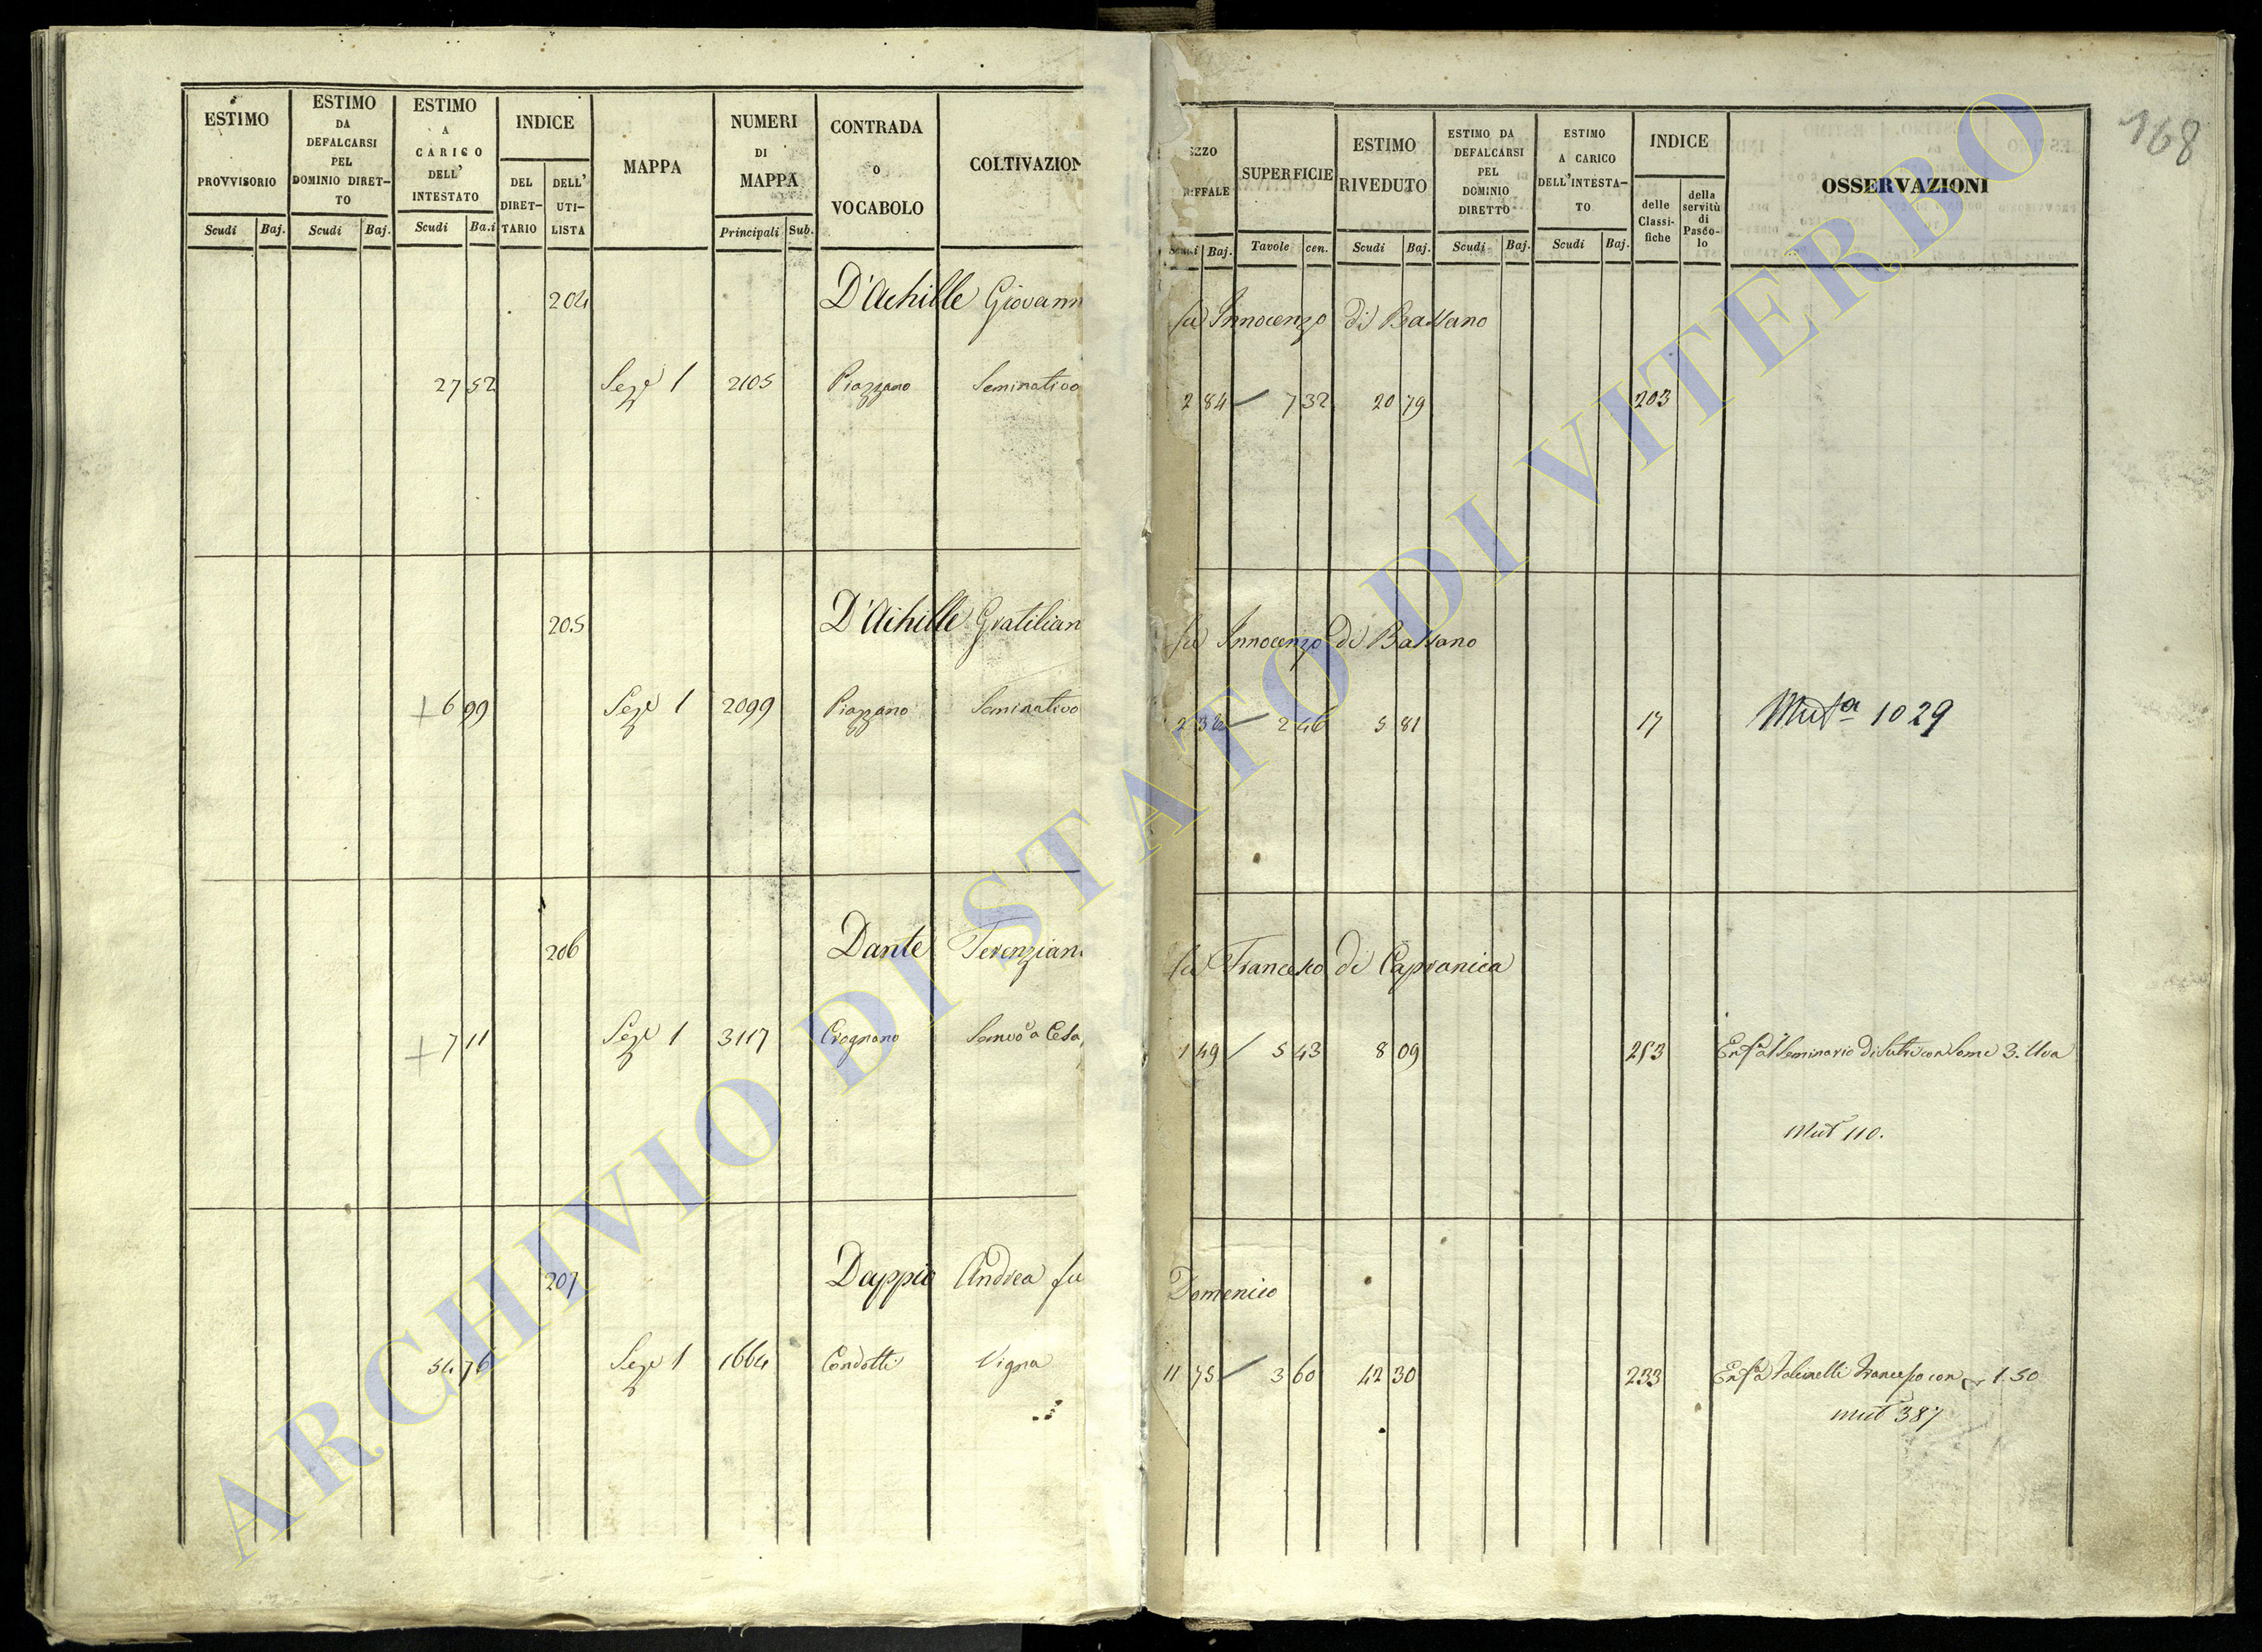 168
ESTIMO PROVVISORIO Scudi Baj.
ESTIMO DA DEFALCARSI PEL DOMINIO DIRET-TO Scudi Baj.
ESTIMO A CARICO DELL' INTESTATO Scudi Ba.i
INDICE DEL DIRET-TARIO DELL' UTI-LISTA
MAPPA
NUMERI DI MAPPA Principali Sub.
CONTRADA O VOCABOLO
COLTIVAZION
EZZO RIFFALE Scudi Baj.
SUPERFICIE Tavole cen.
ESTIMO RIVEDUTO Scudi Baj.
ESTIMO DA DEFALCARSI PEL DOMINIO DIRETTO Scudi Baj.
ESTIMO A CARICO DELL'INTESTA-TO Scudi Baj.
INDICE delle Classi-fiche della servitù di Pasco-lo
OSSERVAZIONI
204 D'Achille Giovann fu Innocenzo di Bassano
27 52 Seze 1 2105 Piazzano Seminativo 2 84 7 32 20 79 203
205 D'Achille Gratilian fu Innocenzo di Bassano
+ 6 99 Seze 1 2099 Piazzano Seminativo 2 36 2 46 5 81 17 Muta 1029
206 Dante Terenzian fu Francesco di Capranica
+ 7 11 Seze 1 3117 Crognano Semvo a Cesa 1 49 5 43 8 09 253 Enfa al Seminario di Sutri con Some 3. Uva
Mut 110.
207 Dappio Andrea fu Domenico
54 76 Seze 1 1664 Condotti Vigna 11 75 3 60 42 30 233 Enfa Francesco con 1.50
mut 387
ARCHIVIO DI STATO DI VITERBO